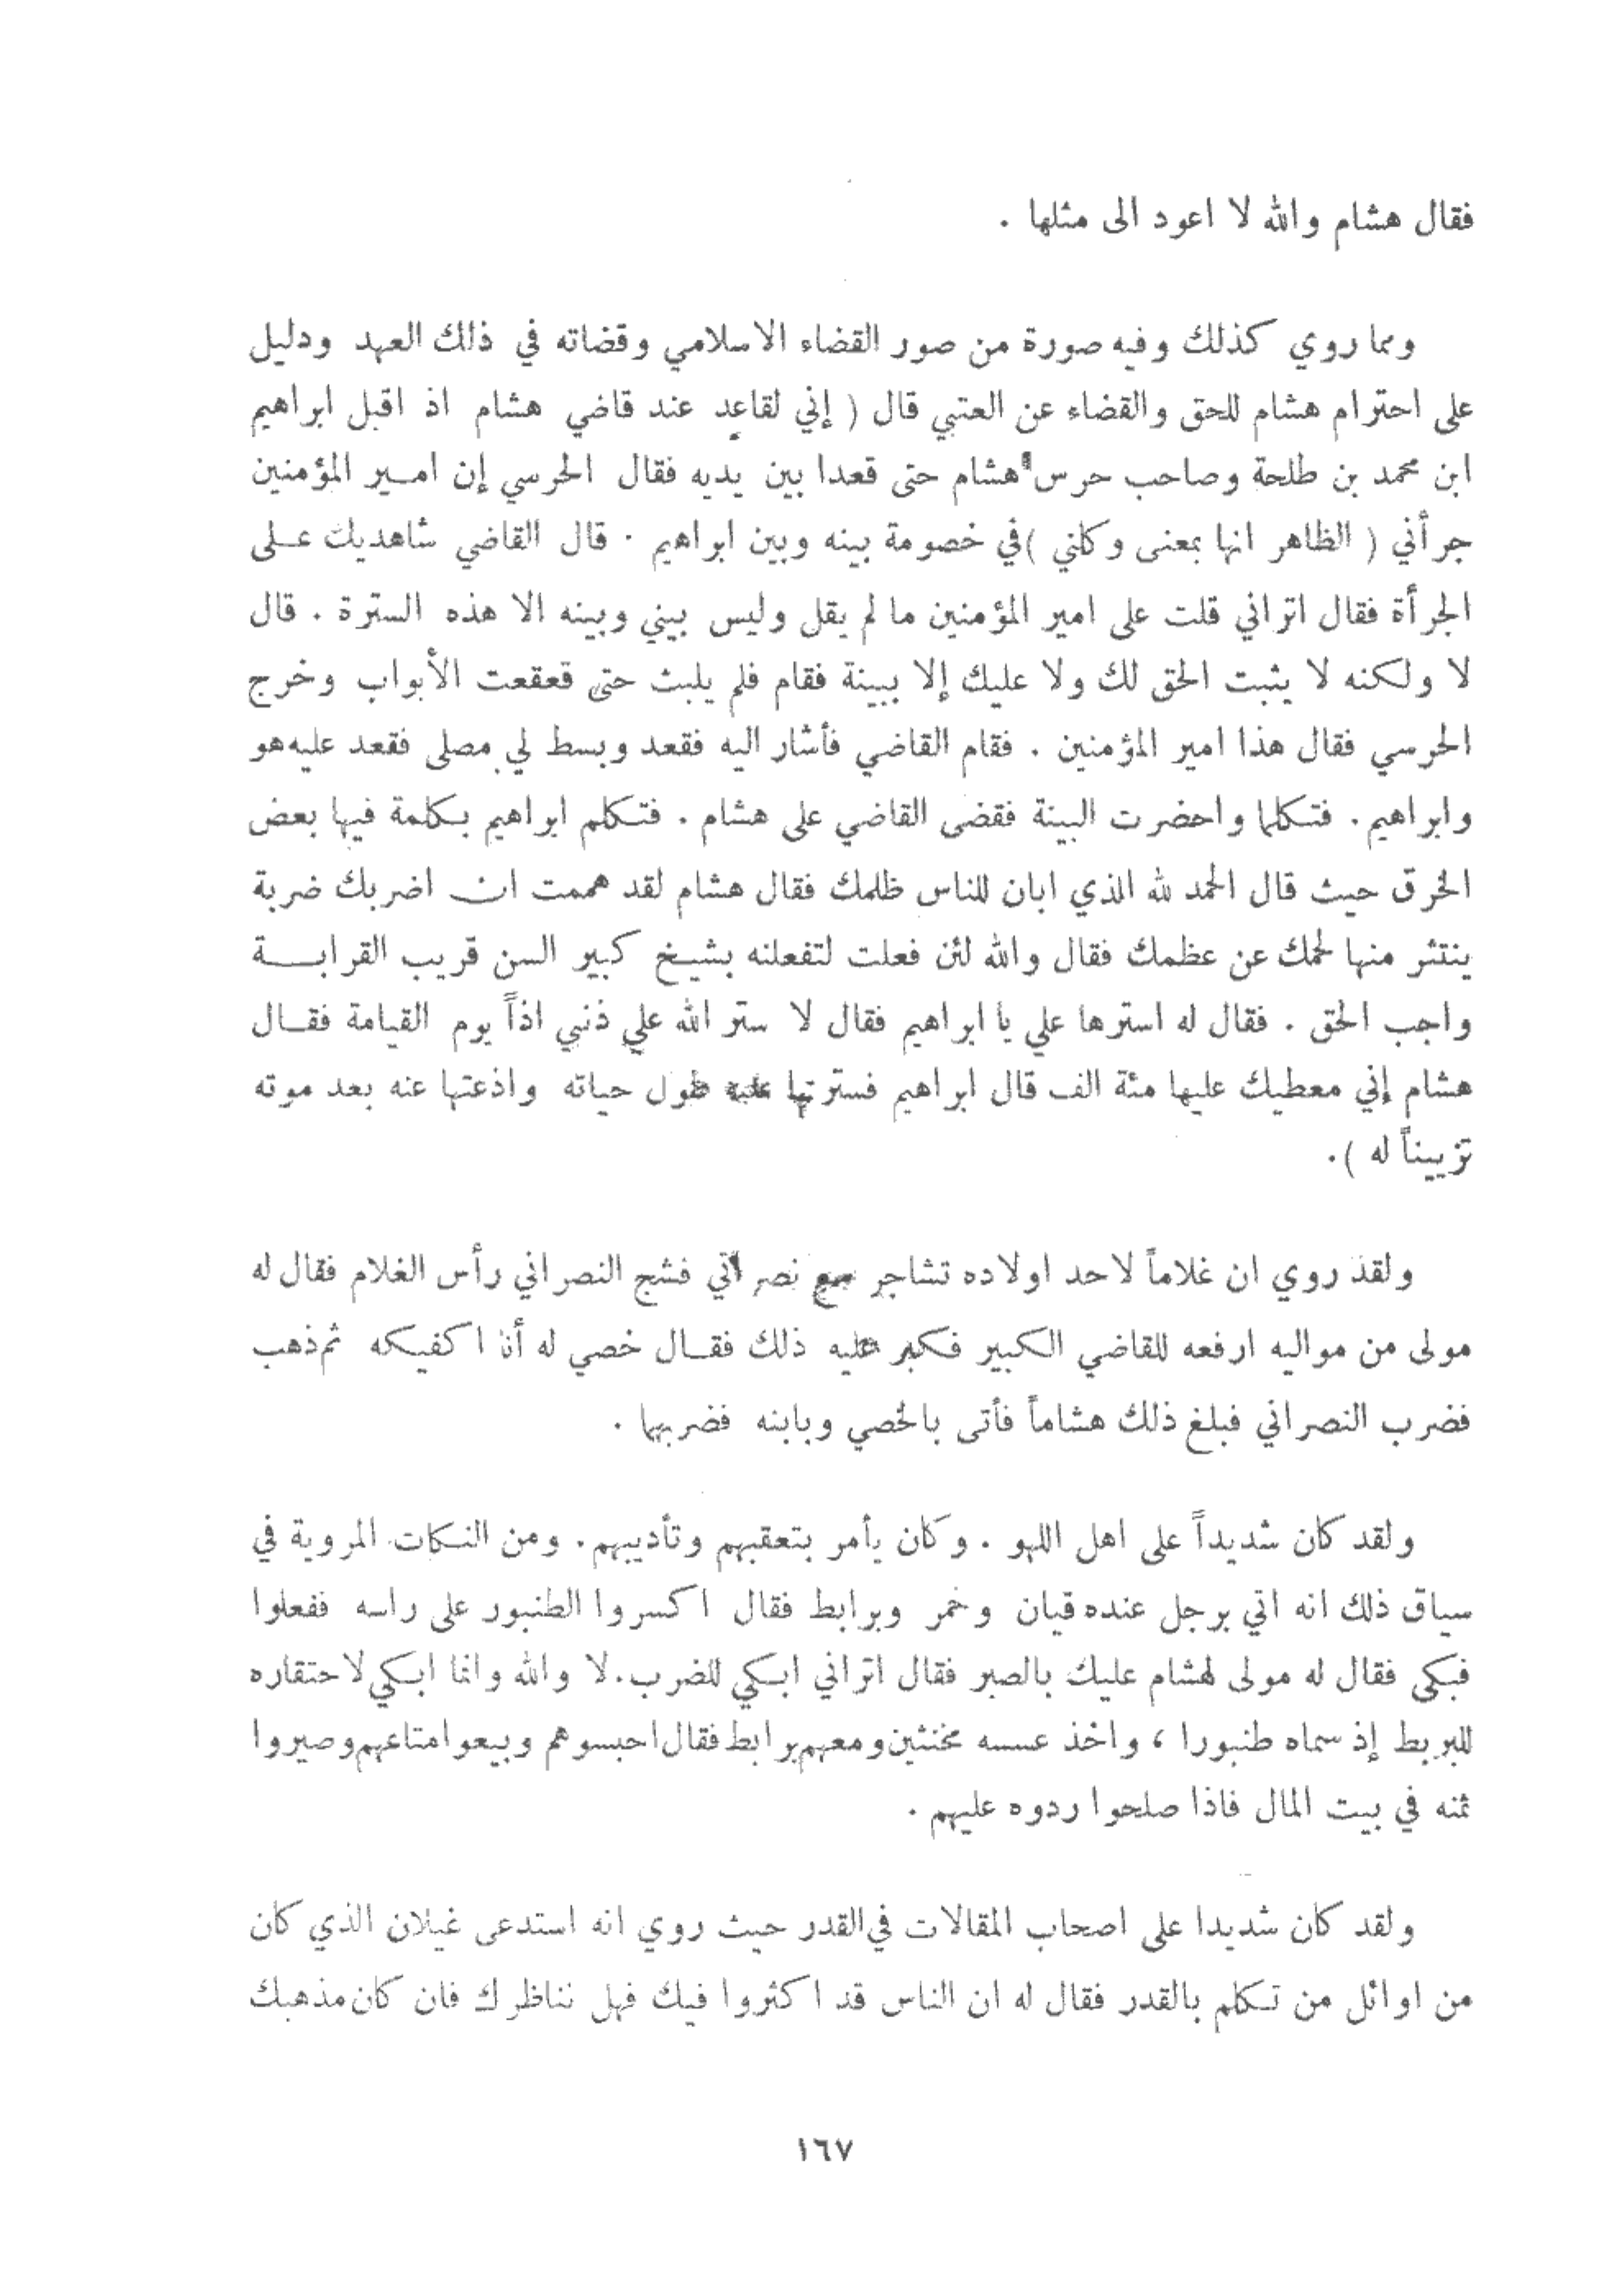 فقال هشام والله لا اعود الى مثلها .
ومما روي كذلك وفيه صورة من صور القضاء الاسلامي وقضاته في ذلك العهد ودليل
على احترام هشام للحق والقضاء عن العتبي قال ( إني لقاعد عند قاضي هشام اذ اقبل ابراهيم
ابن محمد بن طلحة وصاحب حرس هشام حتى قعدا بين يديه فقال الحرسي إن امير المؤمنين
جرأني ( الظاهر انها بمعنى وكلني ) في خصومة بينه وبين ابراهيم . قال القاضي شاهديك على
الجرأة فقال اتراني قلت على امير المؤمنين ما لم يقل وليس بيني وبينه الا هذه السترة . قال
لا ولكنه لا يثبت الحق لك ولا عليك إلا ببينة فقام فلم يلبث حتى قعقعت الأبواب وخرج
الحرسي فقال هذا امير المؤمنين . فقام القاضي فأشار اليه فقعد وبسط لي مصلى فقعد عليه هو
وابراهيم . فتكلما واحضرت البينة فقضى القاضي على هشام . فتكلم ابراهيم بكلمة فيها بعض
الخرق حيث قال الحمد لله الذي ابان للناس ظلمك فقال هشام لقد هممت ان اضربك ضربة
ينتثر منها لحمك عن عظمك فقال والله لئن فعلت لتفعلنه بشيخ كبير السن قريب القرابة
واجب الحق . فقال له استرها علي يا ابراهيم فقال لا ستر الله علي ذنبي اذاً يوم القيامة فقال
هشام إني معطيك عليها مئة الف قال ابراهيم فسترتها عليه طول حياته واذعتها عنه بعد موته
تزييناً له ) .
ولقد روي ان غلاماً لاحد اولاده تشاجر مع نصراني فشج النصراني رأس الغلام فقال له
مولى من مواليه ارفعه للقاضي الكبير فكبر عليه ذلك فقال خصي له أنا اكفيكه ثم ذهب
فضرب النصراني فبلغ ذلك هشاماً فأتى بالخصي وبابنه فضربهما .
ولقد كان شديداً على اهل اللهو . وكان يأمر بتعقبهم وتأديبهم . ومن النكات المروية في
سياق ذلك انه اتي برجل عنده قيان وخمر وبرابط فقال اكسروا الطنبور على راسه ففعلوا
فبكى فقال له مولى لهشام عليك بالصبر فقال اتراني ابكي للضرب . لا والله وانما ابكي لاحتقاره
للبربط إذ سماه طنبورا ، واخذ عسسه مخنثين ومعهم برابط فقال احبسوهم وبيعوا متاعهم وصيروا
ثمنه في بيت المال فاذا صلحوا ردوه عليهم .
ولقد كان شديدا على اصحاب المقالات في القدر حيث روي انه استدعى غيلان الذي كان
من اوائل من تكلم بالقدر فقال له ان الناس قد اكثروا فيك فهل نناظرك فان كان مذهبك
١٦٧